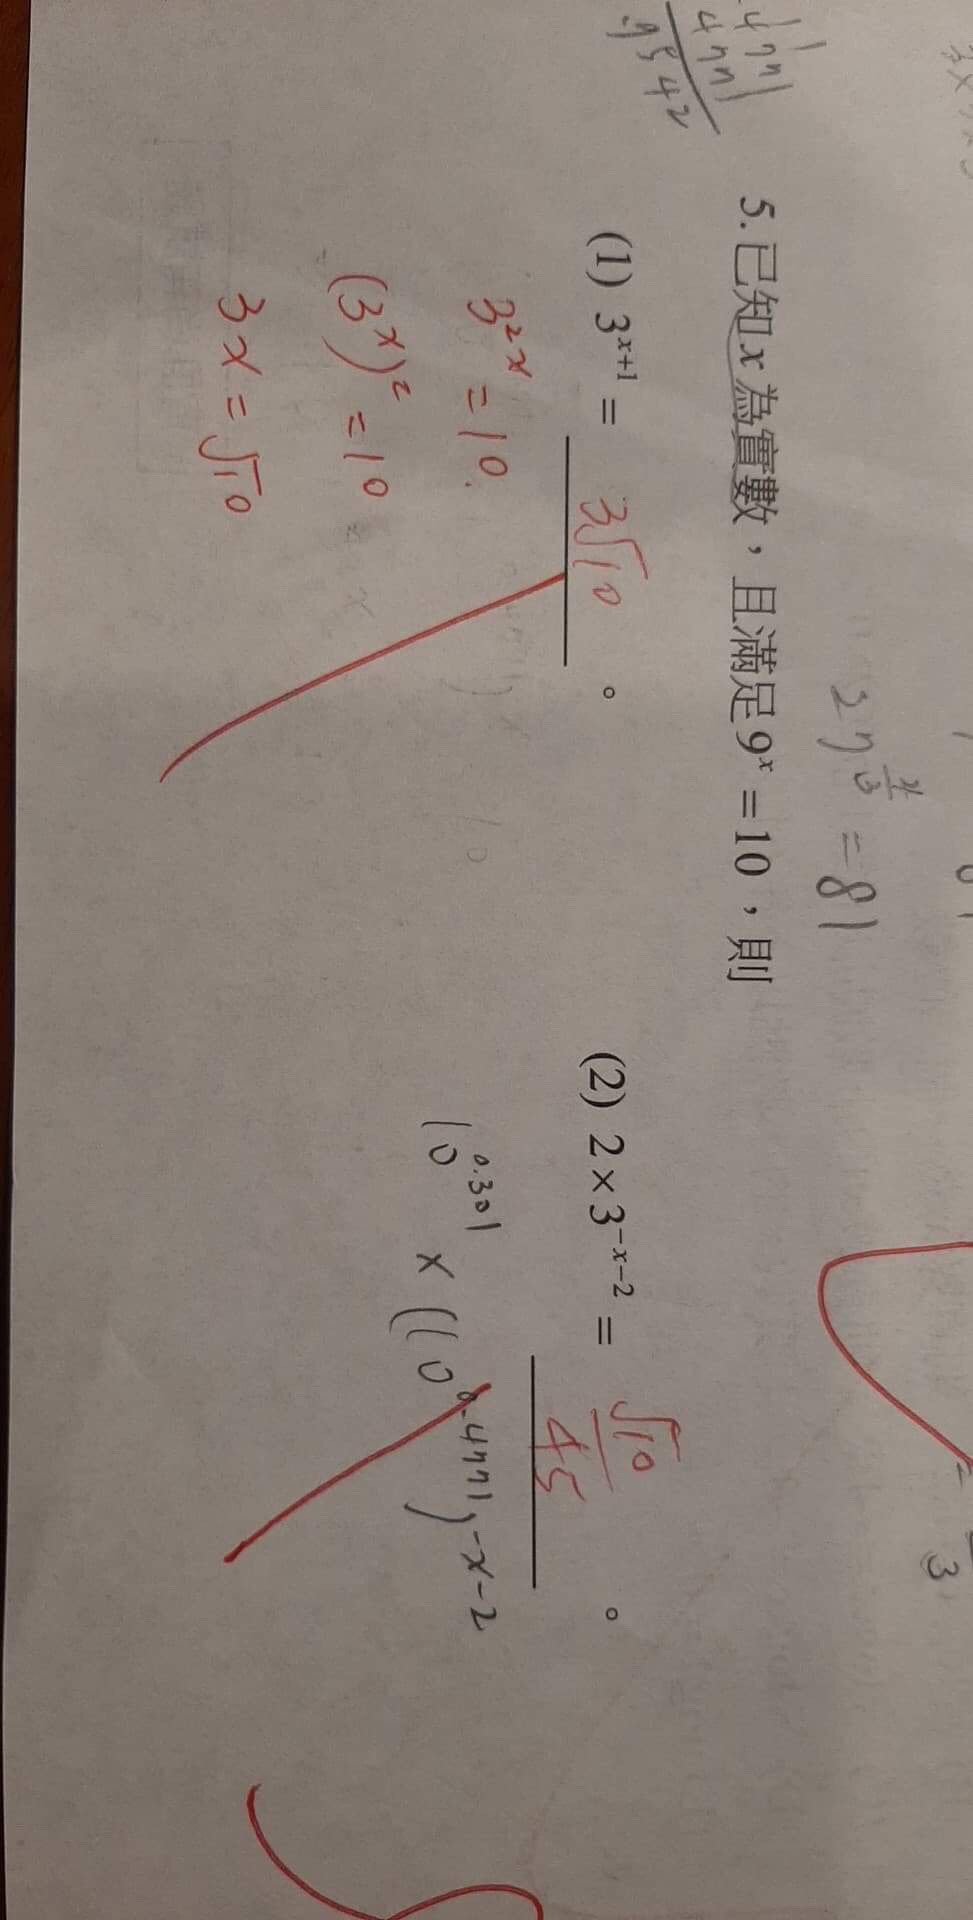 1 1
4771
4771
.9542
27^(x/3) = 81
5. 已知 x 為實數，且滿足 9^x = 10，則
(1) 3^(x+1) = 3√10 。
(2) 2×3^(-x-2) = √10/45 。
3^2x = 10.
(3^x)^2 = 10
3x = √10
10^0.301 × (10^0.4771)^-x-2
3